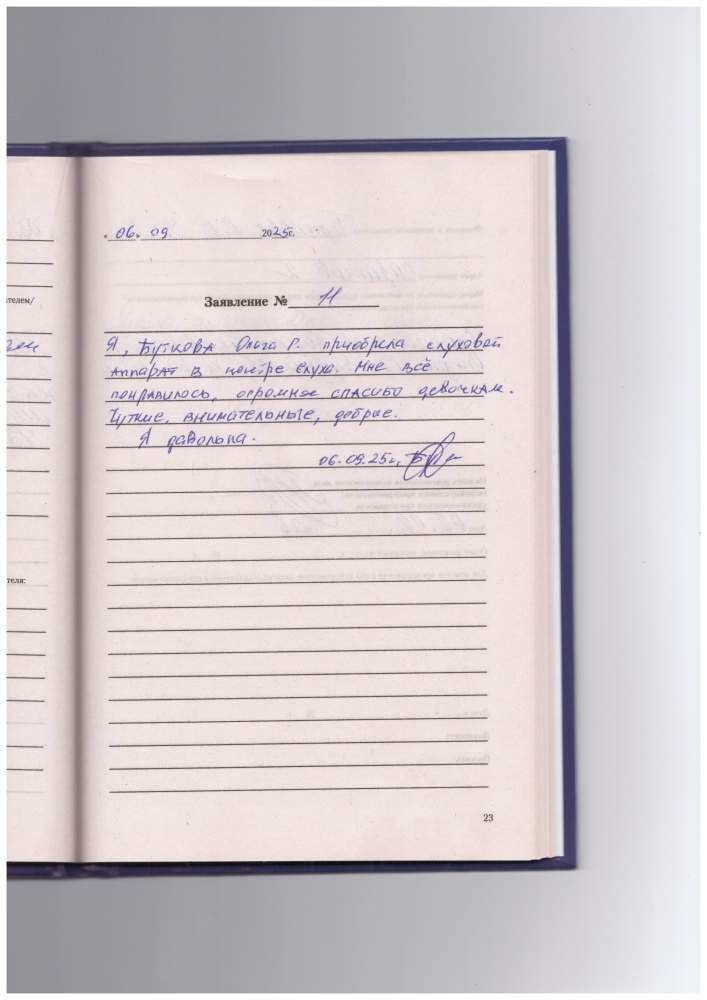 « 06 » 09 2025г.
ателем/
Заявление № 11
Я, Буткова Ольга Р. приобрела слуховой
аппарат в центре слуха. Мне всё
понравилось, огромное спасибо девочкам.
Чуткие, внимательные, добрые.
Я давольна.
06.09.25г.
теля:
23